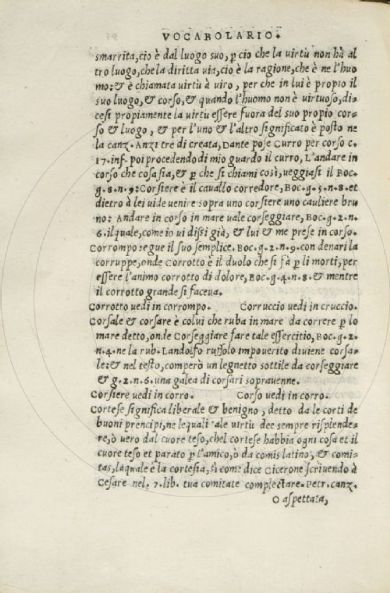 VOCABOLARIO.
smarrita, cio è dal luogo suo, p cio che la virtù non hà al
tro luogo, che la diritta uia, cio è la ragione, che è ne l'huo
mo: & è chiamata virtù à viro, per che in lui è propio il
suo luogo, & corso, & quando l'huomo non è virtuoso, di=
cesi propiamente la virtu essere fuora del suo propio cor=
so & luogo, & per l'uno & l'altro significato è posto ne
la canz. Anzi tre di creata, Dante pose Curro per corso c.
17. inf. poi procedendo di mio guardo il curro, L'andare in
corso che cosa sia, & p che si chiami così, ueggiasi il Boc.
g. 8. n. 9: Corsiere è il cauallo corredore, Boc. g. 5. n. 8. et
dietro à lei uide uenire sopra uno corsiere uno cauliere bru
no: Andare in corso in mare uale corseggiare, Boc. g. 2. n.
6. il quale, come io ui dissi già, & lui & me prese in corso.
Corrompo segue il suo semplice. Boc. g. 2. n. 9. con denari la
corruppe, onde Corrotto è il duolo che si fà p li morti, per
essere l'animo corrotto di dolore, Boc. g. 4. n. 8. & mentre
il corrotto grande si faceua.
Corrotto uedi in corrompo. Corruccio uedi in cruccio.
Corsale & corsare è colui che ruba in mare da correre p lo
mare detto, onde Corseggiare fare tale essercitio, Boc. g. 2.
n. 4. ne la rub. Landolfo ruffolo impouerito diuiene corsa=
le: & nel testo, comperò un legnetto sottile da corseggiare
& g. 2. n. 6. una galea di corsari soprauenne.
Corsiere uedi in corro. Corso uedi in corro.
Cortese significa liberale & benigno, detto da le corti de
buoni principi, ne le quali tale virtù dee sempre risplende=
re, ò uero dal cuore teso, chel cortese habbia ogni cosa et il
cuore teso et parato p l'amico, ò da comis latino, & comi=
tas, la quale è la cortesia, si come dice Cicerone scriuendo à
Cesare nel. 7. lib. tua comitate complectare. Petr. canz.
O aspettata,